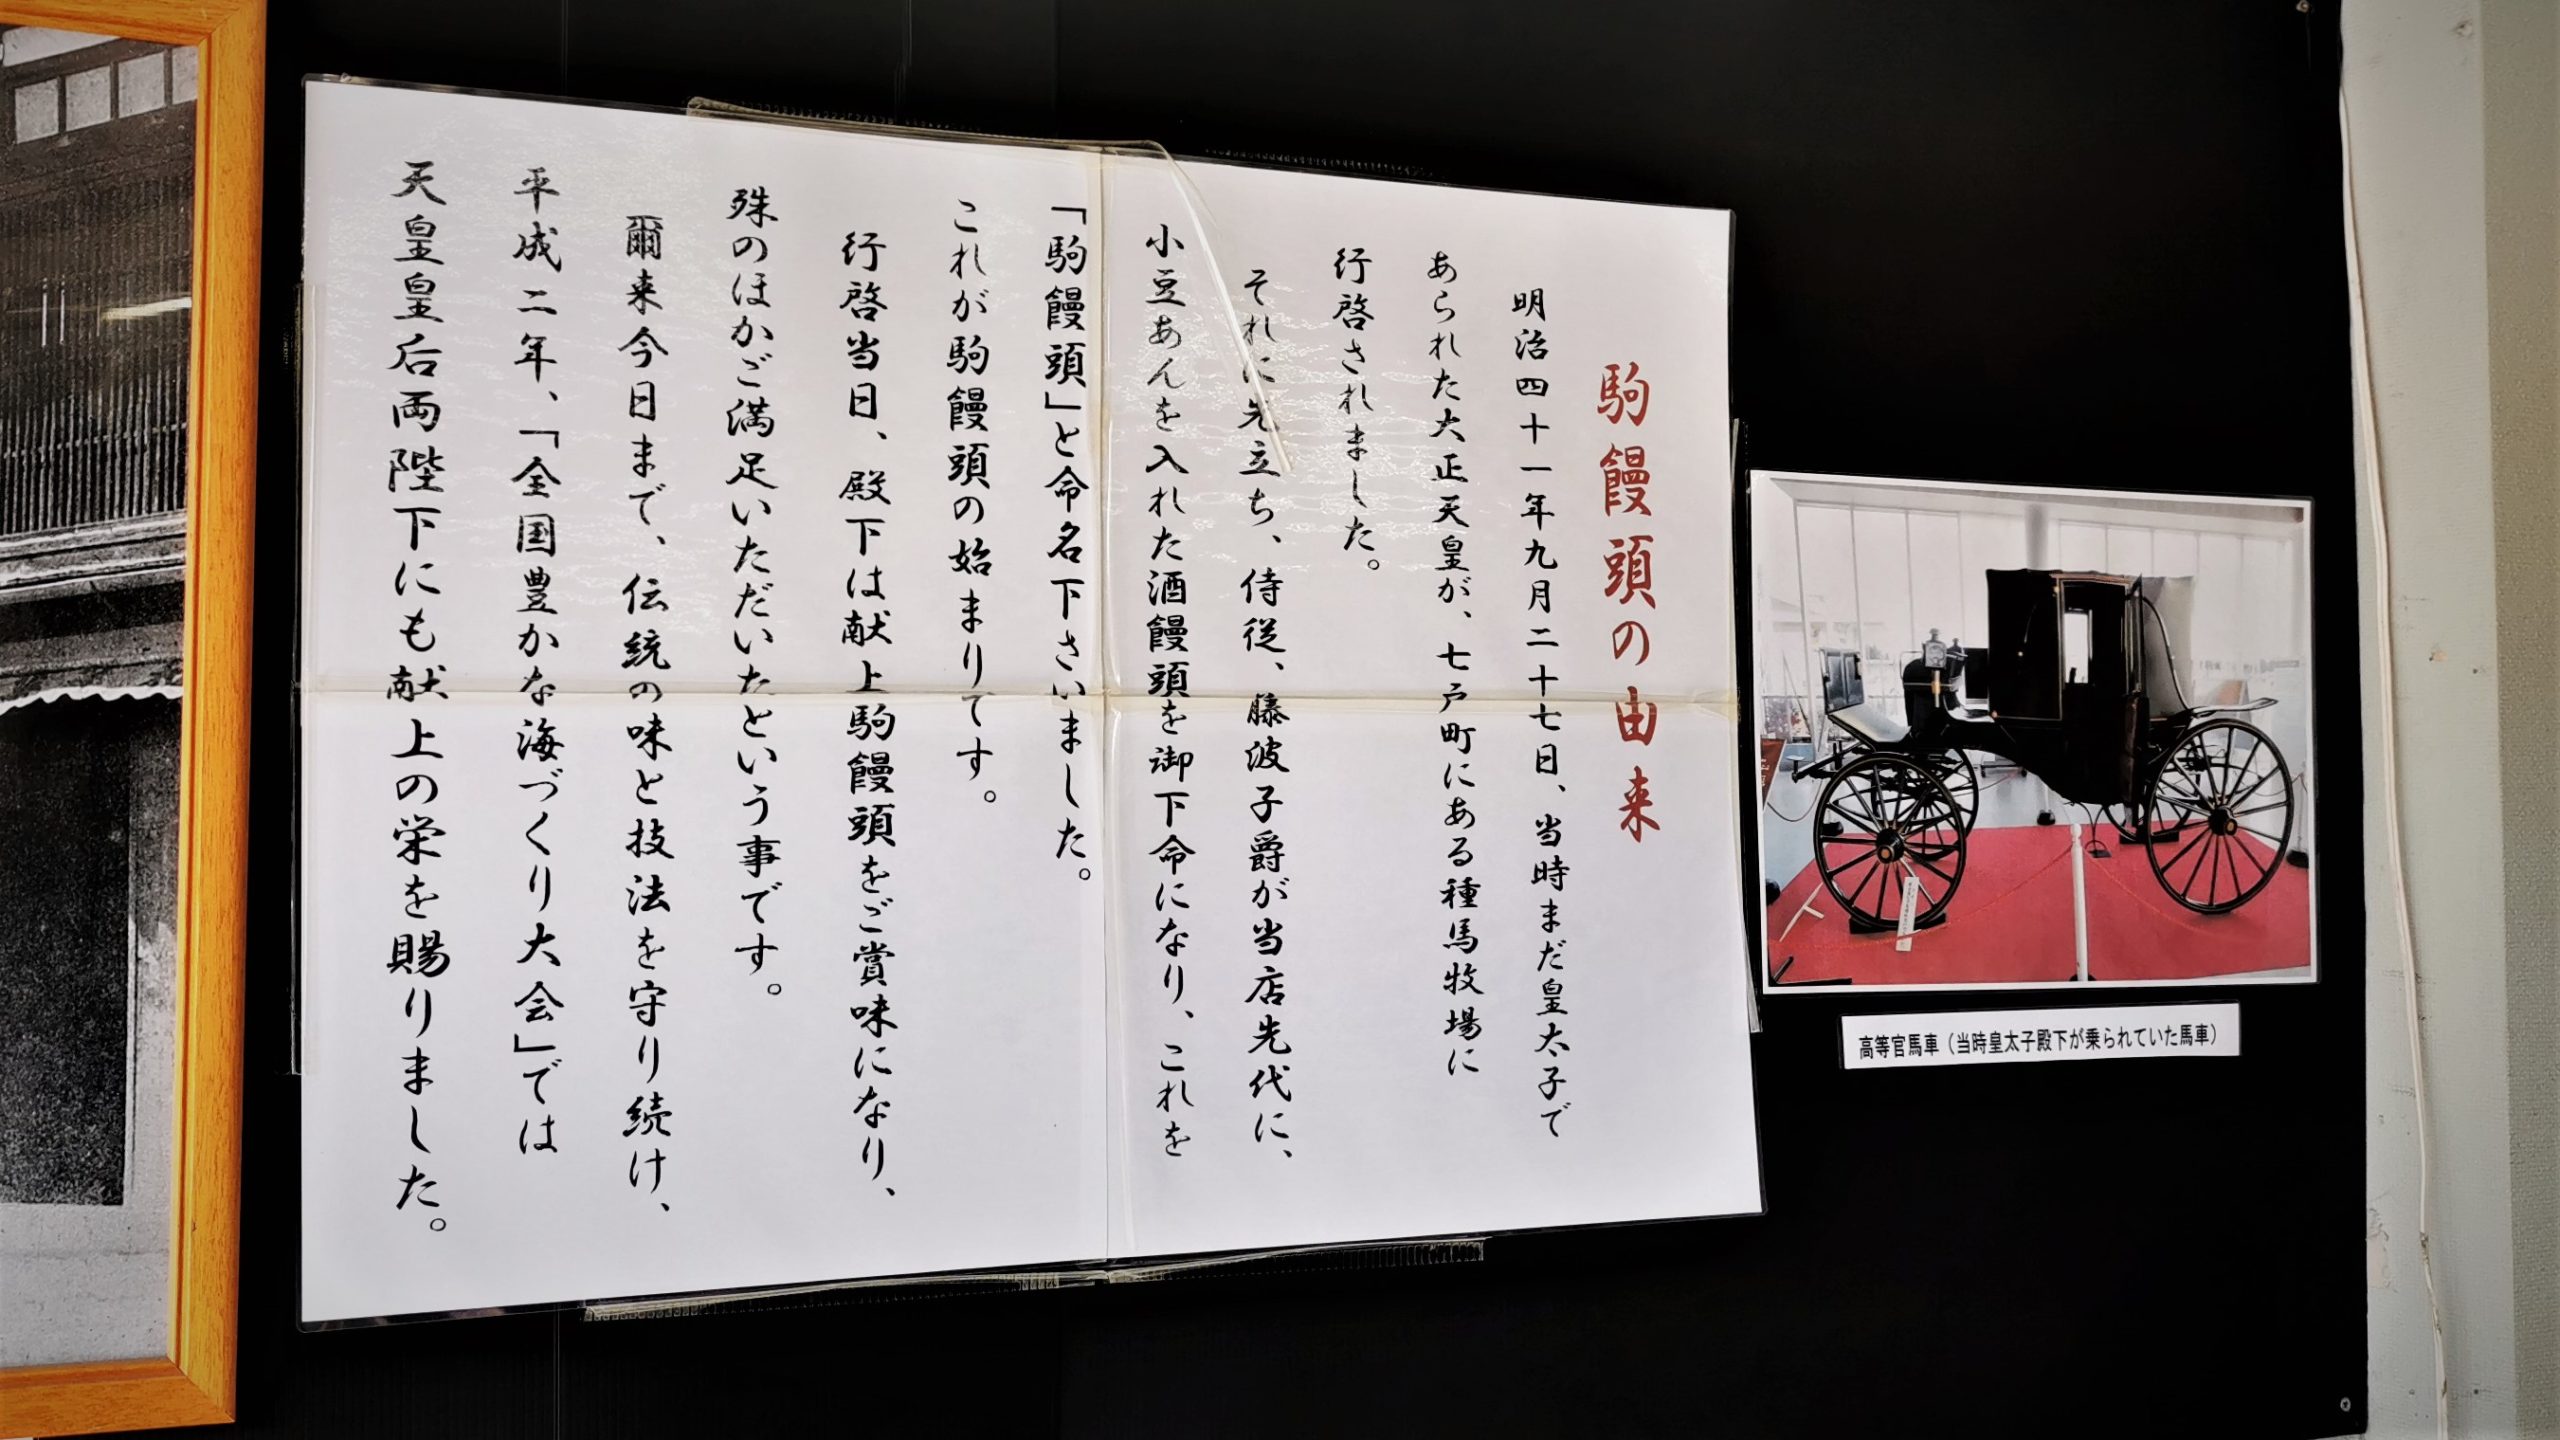 駒饅頭の由来
明治四十一年九月二十七日、当時まだ皇太子で
あられた大正天皇が、七戸町にある種馬牧場に
行啓されました。
それに先立ち、侍従、藤波子爵が当店先代に、
小豆あんを入れた酒饅頭を御下命になり、これを
「駒饅頭」と命名下さいました。
これが駒饅頭の始まりです。
行啓当日、殿下は献上駒饅頭をご賞味になり、
殊のほかご満足いただいたという事です。
爾来今日まで、伝統の味と技法を守り続け、
平成二年、「全国豊かな海づくり大会」では
天皇皇后両陛下にも献上の栄を賜りました。
高等官馬車（当時皇太子殿下が乗られていた馬車）